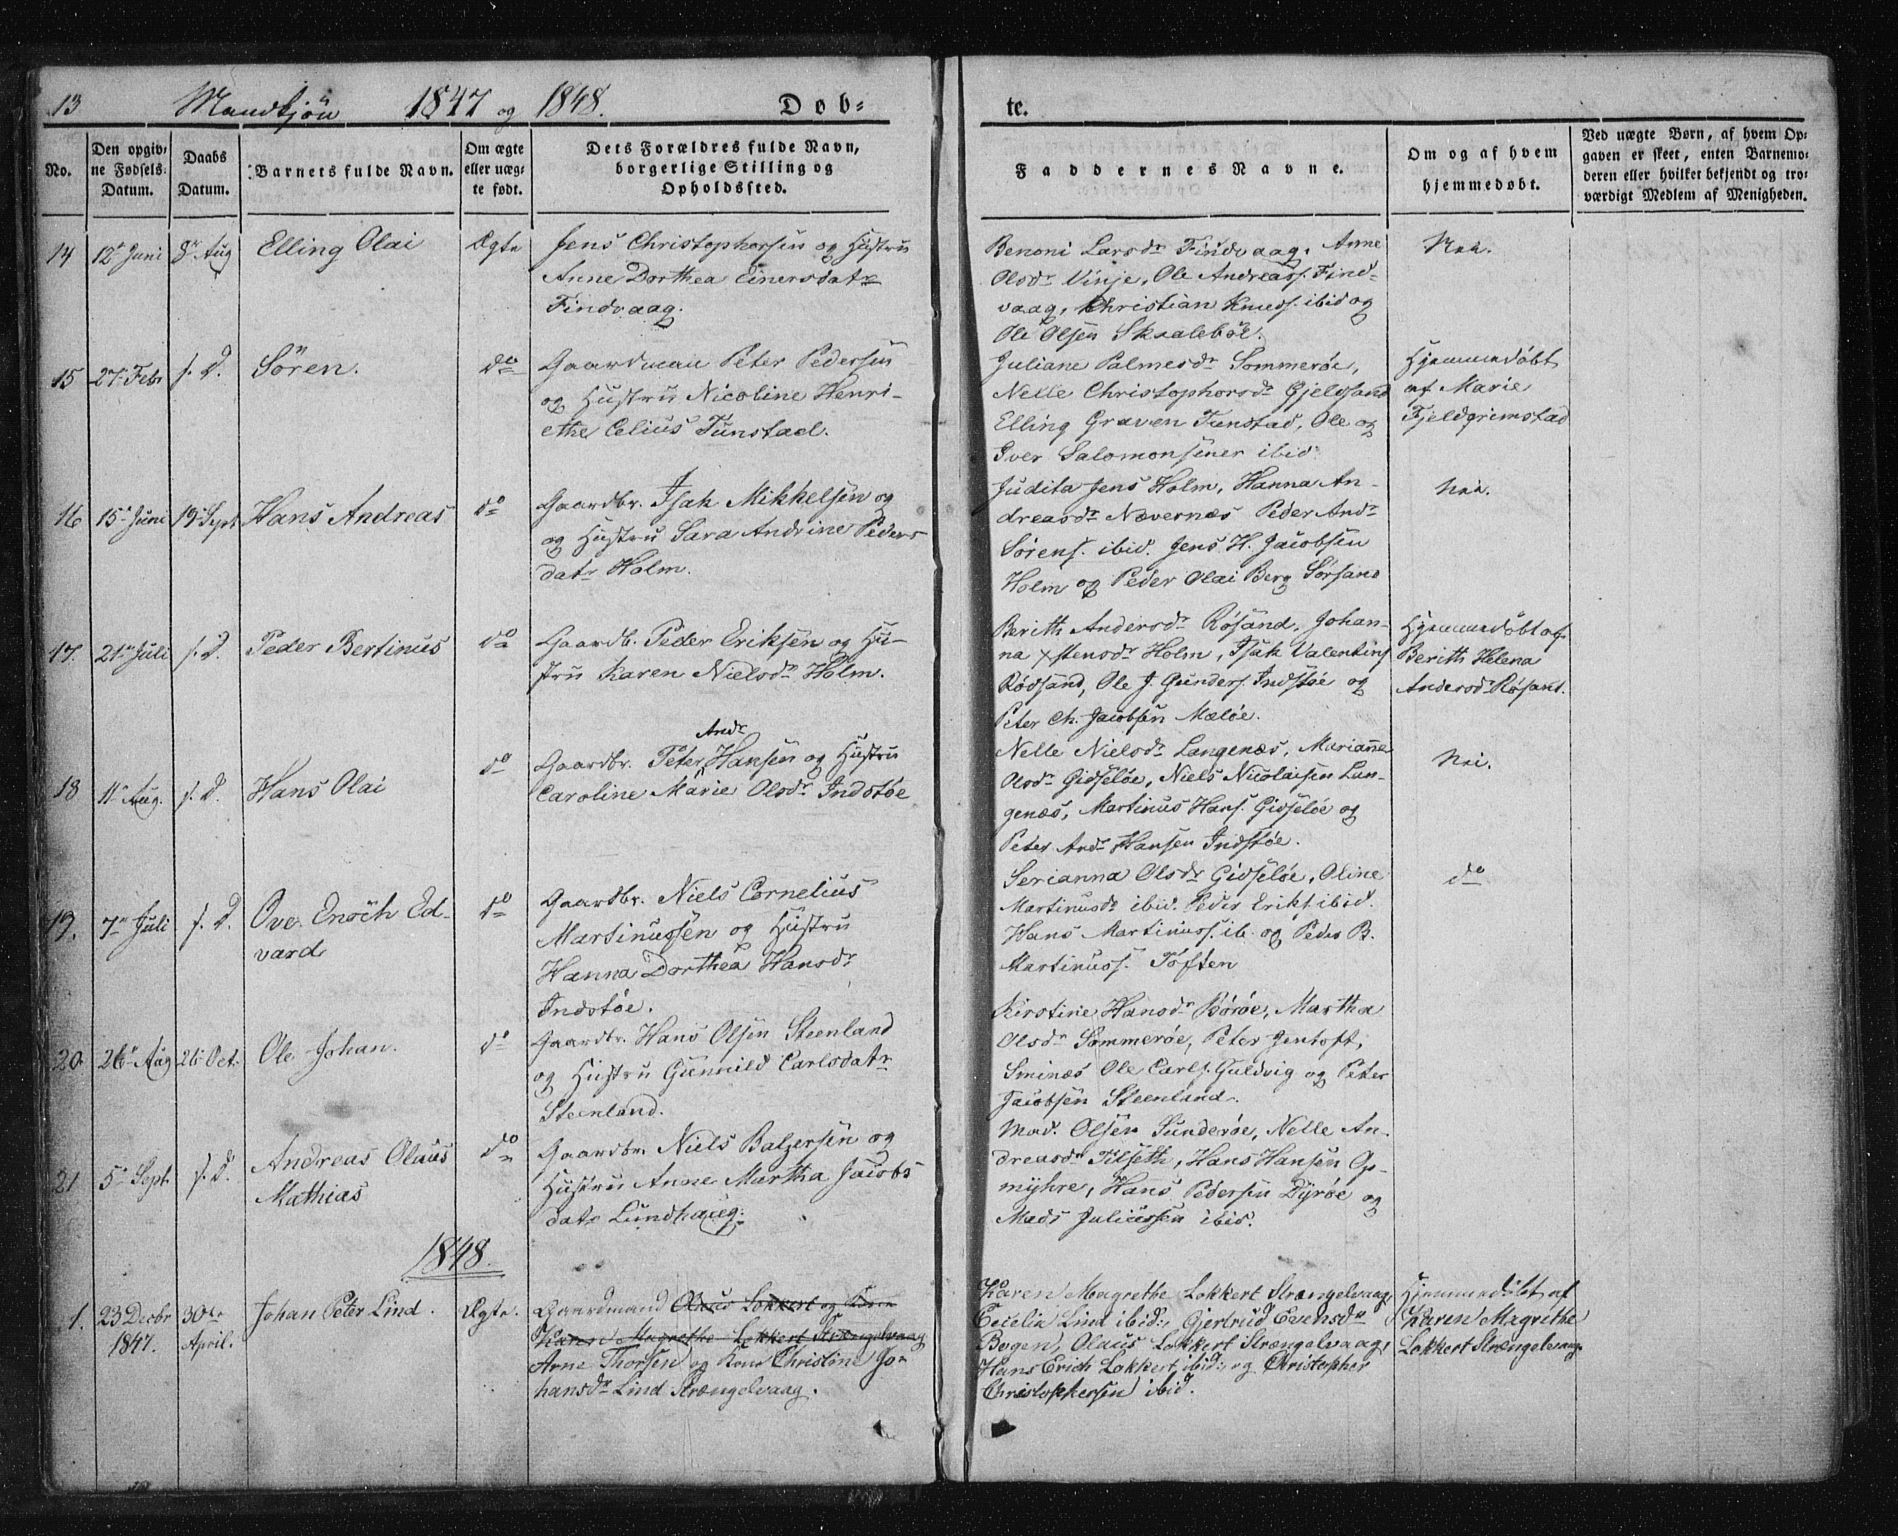 13 Mandkjön 1847 og 1848. Døb-
te.
No.
Den opgiv-
ne Fødsels-
Datum.
Daabs
Datum.
Barnets fulde Navn.
Om ægte
eller uæg-
te født.
Dets Forældres fulde Navn,
borgerlige Stilling og
Opholdssted.
Faddernes Navne.
Om og af hvem
hjemmedøbt.
Ved uægte Børn, af hvem Op-
gaven er skeet, enten Barnemo-
deren eller hvilket bekjendt og tro-
værdigt Medlem af Menigheden.
14 12te Juni 8de Aug Elling Olai Ægte
Jens Christophersen og Hustru
Anne Dorthea Einersdatr
Findvaag.
Benoni Larsdr Findvaag, Anne
Olsdr Vinje, Ole Andreass. Find-
vaag, Christian Knuds. ibid og
Ole Olsen Skaalebøe.
Nei.
15 27 Febr s. D. Sören. do
Gaardman Peter Pedersen
og Hustru Nicoline Henri-
ethe Celius Tunstad.
Juliane Palmesdr Sommerøe,
Nelle Christophersdr Gjelsand
Elling Graven Tunstad, Ole og
Iver Salomonsener ibid.
Hjemmedøbt
af Marie
Fjeldgrimstad
16 15 Juni 19 Sept Hans Andreas do
Gaardbr. Isak Mikkelsen og
og Hustru Sara Andrine Peders
datr Holm.
Judita Jens Holm, Hanna An-
dreasdr Nævernes Peder Andr
Sörens. ibid. Jens H. Jacobsen
Holm og Peder Olai Berg Sørsand
Nei.
17. 21 Juli s. D. Peder Bertinus do
Gaardb. Peder Eriksen og Hu-
stru Karen Nielsdr Holm.
Berith Andersdr Røsand, Johan-
na Xstensdr Holm, Isak Valentins
Rödsand, Ole J. Gunders. Indstøe og
Peter Ch. Jacobsen Meløe.
Hjemmedøbt af
Berith Helena
Andersdr Røsand.
18 11 Aug. s. D. Hans Olai do
Andr
Gaardbr. Peter Hansen og Hustru
Caroline Marie Olsdr Indstøe
Nelle Nielsdr Langenæs, Marianna
Olsdr Gidseløe, Niels Nicolaisen Lan-
genæs, Martinus Hans. Gidseløe og
Peter Andr Hansen Indstøe.
Nei.
19. 7de Juli s. D. Ove Enoch Ed-
vard
do
Gaardbr. Niels Cornelius
Martinussen og Hustru
Hanna Dorthea Hansdr
Indstøe.
Serianna Olsdr Gidseløe, Oline
Martinusdr ibid. Peder Eriks. ibid.
Hans Martinuss. ib. og Peder B.
Martinuss. Toften
do
20 26 Aug 26 Oct. Ole Johan. do
Gaardbr. Hans Olsen Steenland
og Hustru Gunnild Carlsdatr
Steenland.
Kirstine Hansdr Børøe, Martha
Olsdr Sommerøe, Peter Jentoft,
Sminæs Ole Carls. Guldvig og Peter
Jacobsen Steenland.
21 5 Sept. s. D. Andreas Olaus
Mathias
do
Gaardbr. Niels Balzersen og
Hustru Anne Martha Jacobs
datr Lundhaug.
Mad. Olsen Sunderøe, Nelle An-
dreasdr Tilseth, Hans Hansen Op-
myhre, Hans Pedersen Dyrøe og
Mads Juliussen ibid.
1848.
1. 23 Decbr
1847.
30te
April.
Johan Peter Lind. Ægte.
Gaardmand Olaus Lokkert og Kone
Karen Magrethe Lokkert Strængelvaag
Arne Thorsen og Kone Christine Jo-
hansdr Lind Strængelvaag.
Karen Magrethe Lokkert Strængelvaag,
Cecelia Lind ibid., Gjertrud Evensdr
Bogen, Olaus Lokkert Strængelvaag,
Hans Erich Lokkert ibid. og Christopher
Christophersen ibid.
Hjemmedøbt af
Karen Magrethe
Lokkert Strængelvaag.